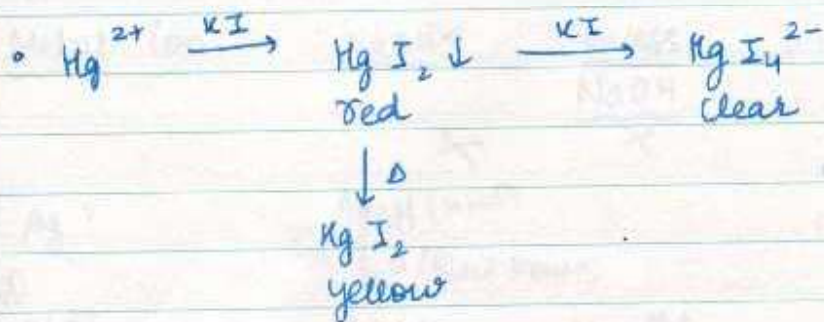 • Hg²⁺ —KI→ HgI₂ ↓ —KI→ HgI₄²⁻
red clear
↓ Δ
HgI₂
yellow